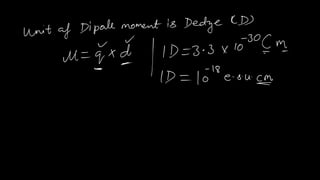 Unit of Dipole moment is Dedye (D)
μ = q × d
1D = 3.3 × 10⁻³⁰ C m
1D = 10⁻¹⁸ e.s.u cm